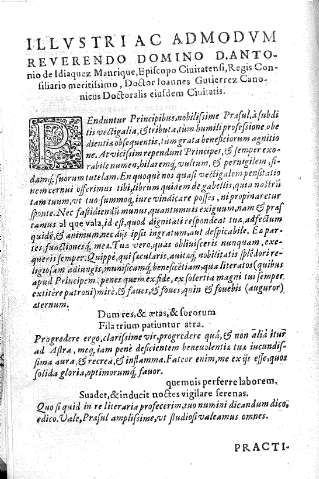 ILLVSTRI AC ADMODVM
REVERENDO DOMINO D. ANTO-
nio de Idiaquez Manrique, Episcopo Ciuitatensi, Regis Con-
siliario meritissimo, Doctor Ioannes Gutierrez Cano-
nicus Doctoralis eiusdem Ciuitatis.
PEnduntur Principibus, nobilissime Præsul, à subdi
tis vectigalia, & tributa, tùm humili professione, obe
dientiæ obsequentis, tum grata beneficiorum agnitio
ne. At vicissim rependunt Principes, & semper exo-
rabile numen, hilarémq; vultum, & peruigilem, si-
damq; suorum tutelam. En quoque nos quasi vectigalem pensitatio
nem cernui offerimus tibi, librum quidem de gabellis, quia nostrū
tam tuum, vt tuo summoq; iure vindicare posses, ni propinaretur
sponte. Nec fastidiendū munus, quantumuis exiguum, nam & præs
tamus al que vala, id est, quod dignitati respondeat tua, adfectum
quidē, & animum nec ipsis ingratum, aut despicabile. Ea par-
tes, functionesq́; meæ. Tuæ vero, quas obliuisceris nunquam, exe-
queris semper. Quippè, qui sæcularis, auitæq́; nobilitatis splēdori re-
ligiosam adiungis, munificamq́; beneficētiam, qua literatos (quibus
apud Principem, penes quem ex fide, ex solertia magni tui semper
exititêre patroni) mirè, & faues, & foues, quin & fouebis (auguror)
æternum.
Dum res, & ætas, & sororum
Fila trium patiuntur atra.
Progredere ergo, clarissime vir, progredere quá, & non aliâ itur
ad Astra, meq́; iam penè deficientem beneuolentia tua iucundis-
sima aura, & recrea, & inflamma. Fateor enim, me ex ijs esse, quos
solida gloria, optimorumq́; fauor.
quemuis perferre laborem,
Suadet, & inducit noctes vigilare serenas.
Quo si quid in re literaria profecerim, tuo numini dicandum dico,
edico. Vale, Præsul amplissime, vt studiosi valeamus omnes.
PRACTI-